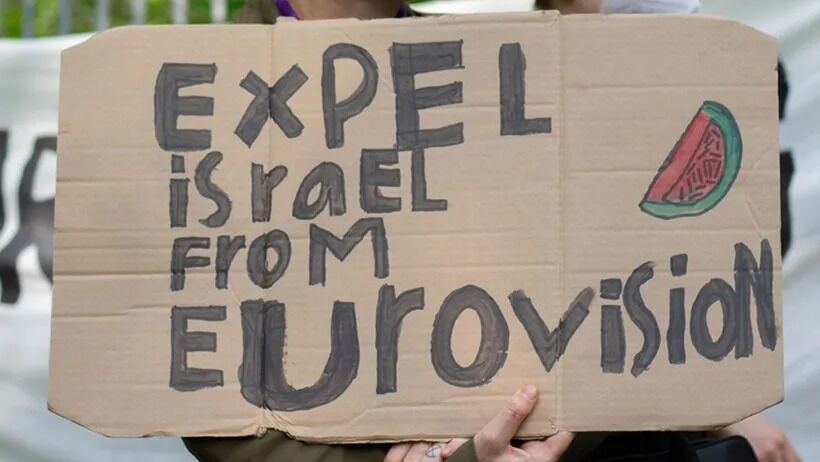 EXPEL
israEL
FroM
EUrovision